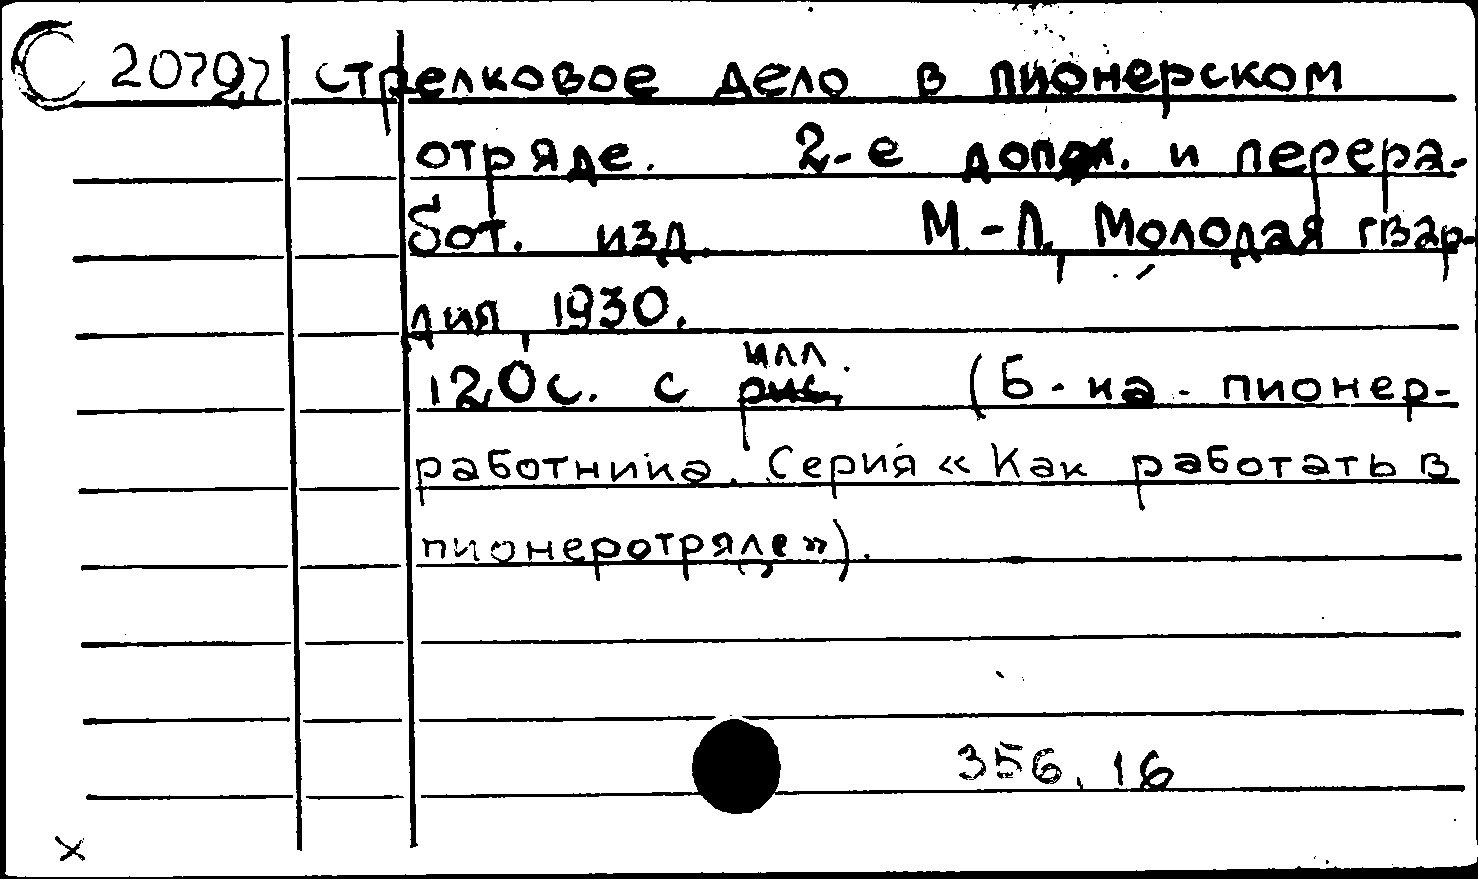 С 20797 Стрелковое дело в пионерском
отряде. 2-е допол. и перера-
бот. изд. М.-Л., Молодая гвар-
дия, 1930.
илл.
120с. с рис. (Б-ка. пионер-
работника. Серия «Как работать в
пионеротряде»).
356.16
x